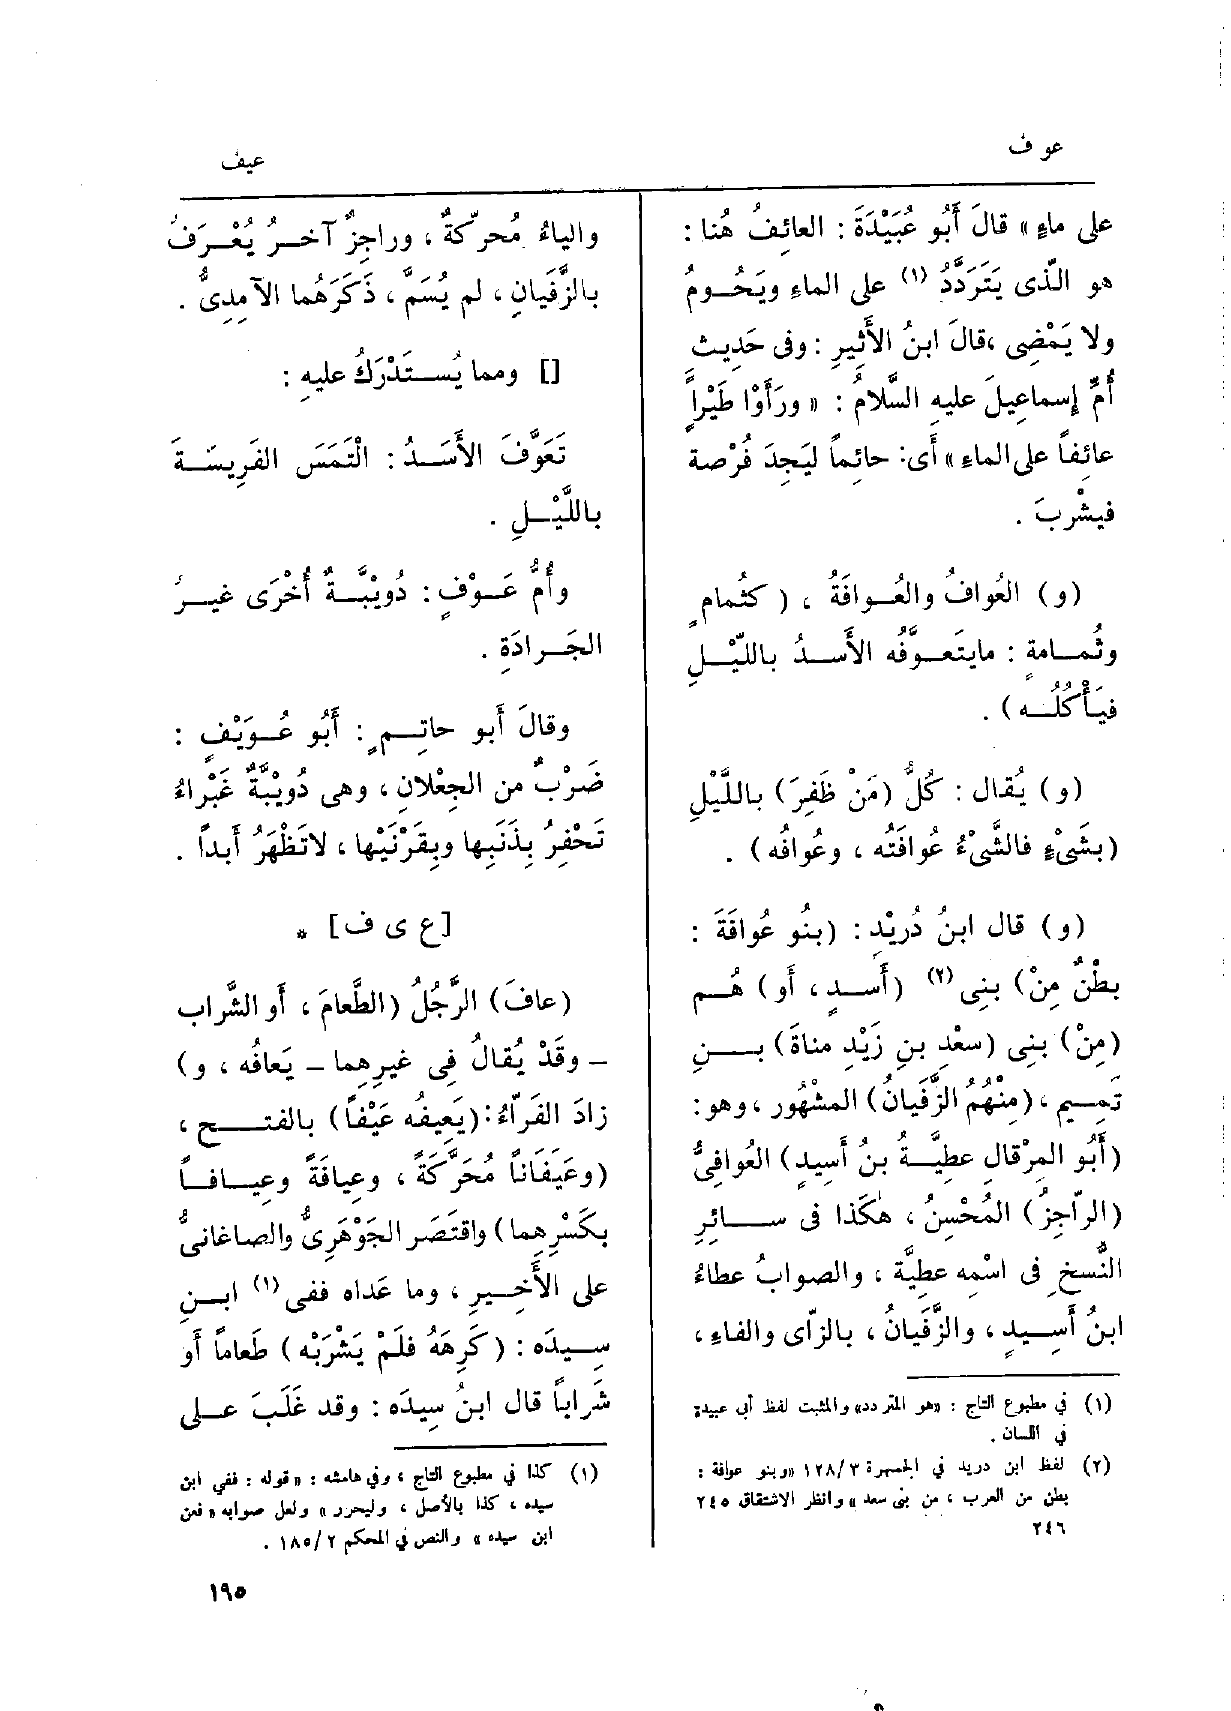 عوف
عيف
على ماءٍ» قالَ أَبُو عُبَيْدَةَ : العائِفُ هُنا :
هو الَّذى يَتَرَدَّدُ (١) على الماءِ ويَحُومُ
ولا يَمْضِى ، قالَ ابنُ الأَثِيرِ : وفى حَدِيث
أُمِّ إِسماعِيلَ عليهِ السَّلامُ : « ورَأَوْا طَيْراً
عائِفاً على الماءِ» أَى: حائِماً لِيَجِدَ فُرْصة
فيشْربَ .
(و) العُوافُ والعُوافَةُ ، ( كثُمامٍ
وثُمامةٍ : مايتَعوَّفُه الأَسدُ باللَّيْلِ
فيَأْكُلُه) .
(و) يُقال : كُلُّ (مَنْ ظَفِرَ) باللَّيْلِ
(بشَىْءٍ فالشَّىْءُ عُوافَتُه ، وعُوافُه) .
(و) قال ابنُ دُريْدٍ : (بنُو عُوافَةَ :
بطْنٌ مِنْ) بنِى (٢) (أَسدٍ ، أَو) هُم
(مِنْ) بنِى (سعْدِ بنِ زَيْدِ مناةَ) بنِ
تَمِيم ، (مِنْهُمُ الزَّفَيانُ) المشْهُور ، وهو :
(أَبُو المِرْقالِ عطِيَّةُ بنُ أَسِيدٍ) العُوافِىُّ
(الرّاجِزُ) المُحْسِنُ ، هٰكَذا فى سائِرِ
النُّسخِ فِى اسْمِه عطِيَّة ، والصوابُ عطاءُ
ابنُ أَسِيدٍ ، والزَّفَيانُ ، بالزّاى والفاءِ ،
(١) في مطبوع التاج : «هو المتردد» والمثبت لفظ أبى عبيدة
في اللسان .
(٢) لفظ ابن دريد في الجمهرة ٣/١٢٨ «وبنو عوافة :
بطن من العرب ، من بنى سعد» وانظر الاشتقاق ٢٤٥
٢٤٦
والياءُ مُحرّكةٌ ، وراجِزٌ آخرُ يُعْرَفُ
بالزَّفَيَانِ ، لم يُسَمَّ ، ذَكَرَهُما الآمِدِىُّ .
[] ومما يُستَدْرَكُ عليهِ :
تَعَوَّفَ الأَسَدُ : الْتَمَسَ الفَرِيسَةَ
باللَّيْلِ .
وأُمُّ عَوْفٍ : دُويْبَّةٌ أُخْرَى غيرُ
الجَرادَةِ .
وقالَ أَبو حاتِمٍ : أَبُو عُوَيْفٍ :
ضَرْبٌ من الجِعْلانِ ، وهى دُويْبَّةٌ غَبْراءُ
تَحْفِرُ بِذَنَبِها وبِقَرْنَيْها ، لاتَظْهَرُ أَبداً .
[ع ى ف] *
(عافَ) الرَّجُلُ (الطَّعامَ ، أَو الشَّراب
– وقَدْ يُقالُ فِى غيرِهِما – يَعافُه ، و)
زادَ الفَرّاءُ : (يَعِيفُه عَيْفاً) بالفتح ،
(وعَيَفَاناً مُحَرَّكَةً ، وعِيافَةً وعِيافاً
بكَسْرِهِما) واقتَصَر الجَوْهَرِىُّ والصاغانىُّ
على الأَخِيرِ ، وما عَداه ففى (١) ابنِ
سِيدَه : ( كَرِهَهُ فلَمْ يَشْرَبْه ) طَعاماً أَو
شَراباً قال ابنُ سِيدَه : وقد غَلَبَ على
(١) كذا في مطبوع التاج ، وفي هامشه : « قوله : ففي ابن
سيده ، كذا بالأصل ، وليحرر » ولعل صوابه «فعن
ابن سيده» والنص في المحكم ٢/١٨٥ .
١٩٥